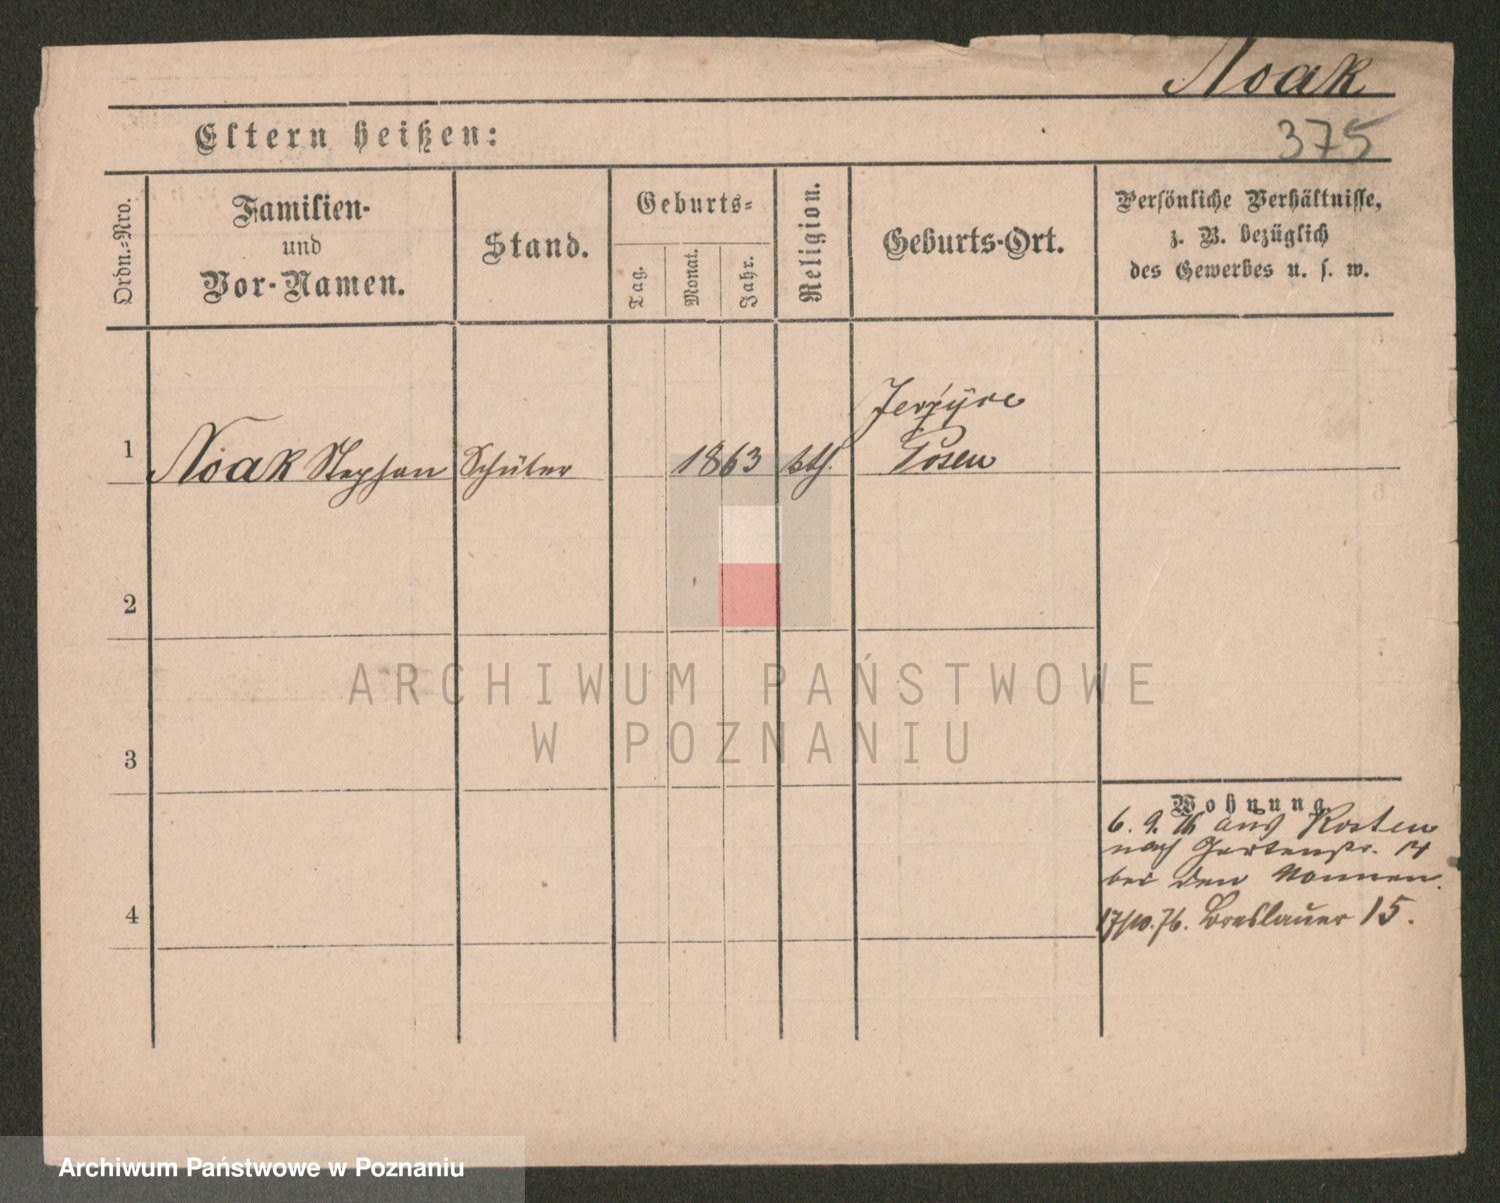 Noak
375
Eltern heißen:
Ordn.-Nro.
Familien-
und
Vor-Namen.
Stand.
Geburts-
Tag.
Monat.
Jahr.
Religion.
Geburts-Ort.
Persönliche Verhältnisse,
z. B. bezüglich
des Gewerbes u. s. w.
1
Noak Stephan
Schüler
1863
kth.
Posen
2
3
4
Wohnung.
6. 9. 76 aus Kosten
nach Gartenstr. 14
bei den Nonnen.
17/10. 76. Breslauer 15.
ARCHIWUM PAŃSTWOWE
W POZNANIU
Archiwum Państwowe w Poznaniu